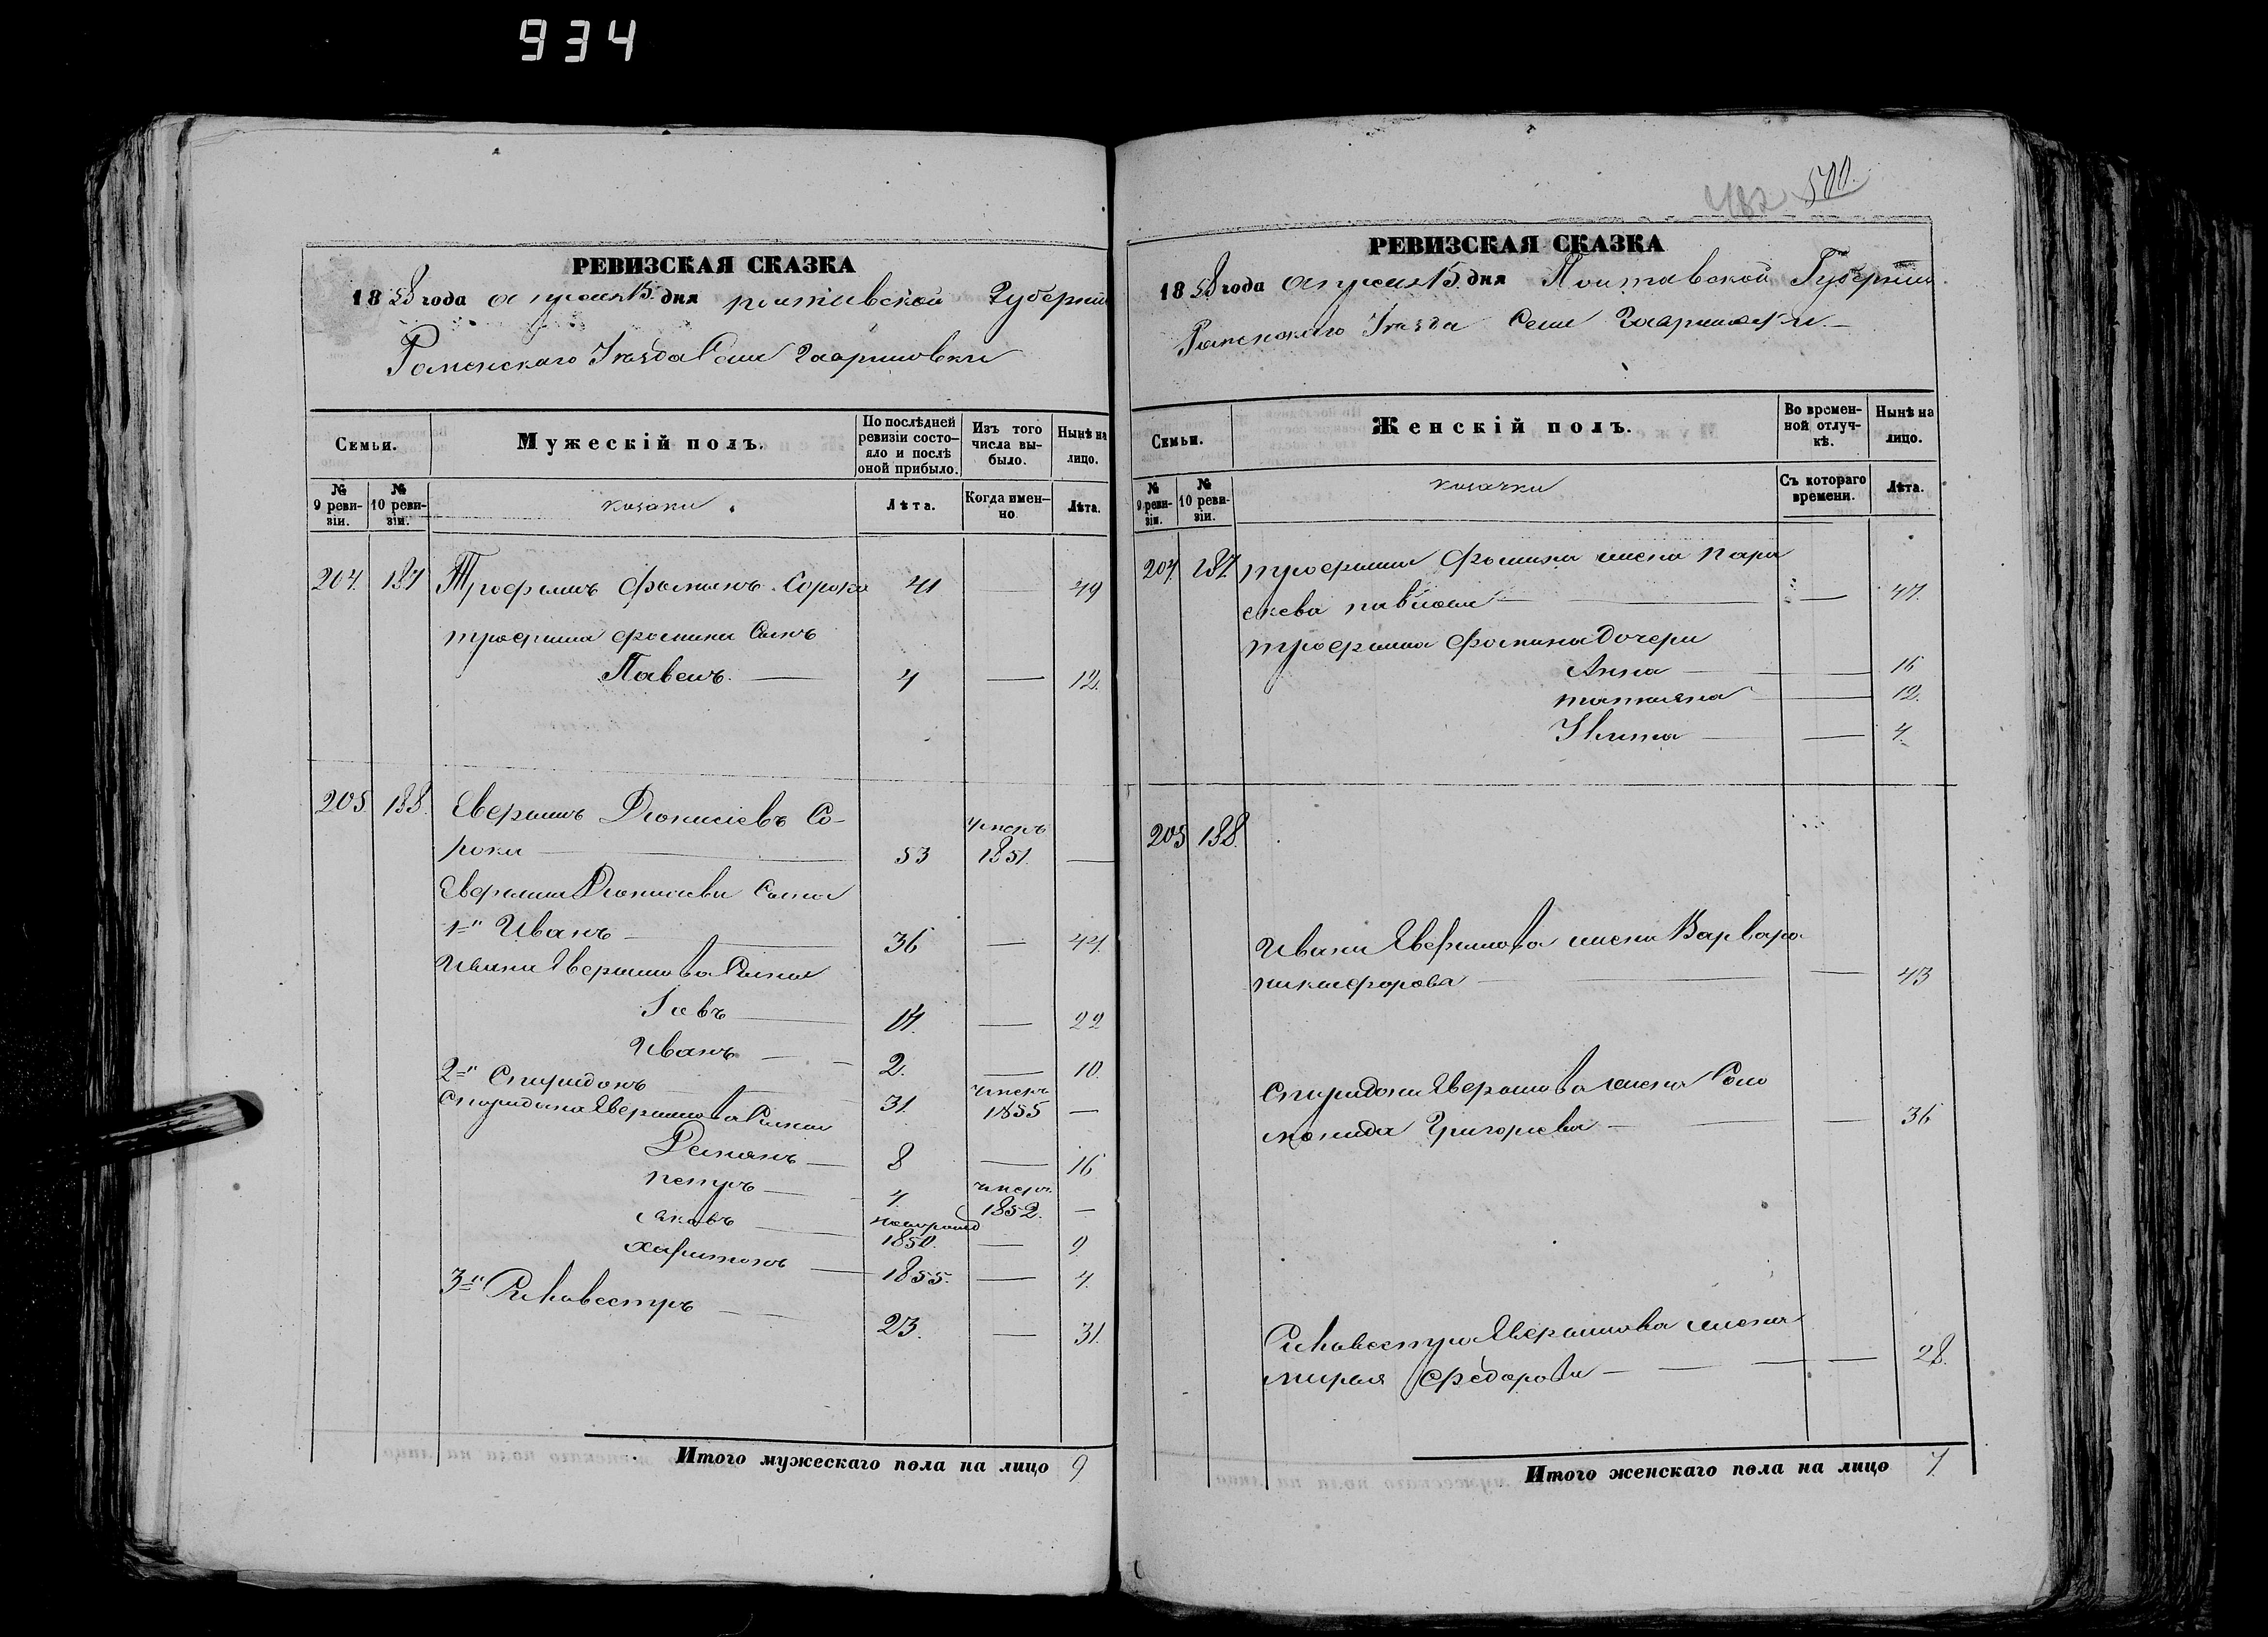 934
РЕВИЗСКАЯ СКАЗКА
1858 года апреля 15 дня Полтавской Губернии
Роменскаго Уезда Села Гавришовки
Семьи.
Мужескій полъ.
По послѣдней ревизіи состояло и послѣ оной прибыло.
Изъ того числа выбыло.
Нынѣ на лицо.
№ 9 ревизіи.
№ 10 ревизіи.
козаки
Лѣта.
Когда именно
Лѣта.
204. 187 Трофимъ Фоминъ Сорока 41 — 49
трофима фомина Сынъ
Павелъ — 4 — 12.
205. 188. Евфимъ Дионисіевъ Со-
роки — 53 умеръ 1851. —
Евфима Дионисиева Сыны
1й Иванъ — 36 — 44.
Ивана Евфимова Сыны
Іовъ — 14. — 22
Иванъ — 2. — 10.
2й Спиридонъ — 31. умеръ 1855 —
Спиридона Евфимова Сыны
Демянъ — 8 — 16
петръ — 4. умеръ 1852. —
яковъ — новорожд 1850. — 9.
харитонъ — 1855. — 4.
3й Сильвестръ — 23. — 31.
Итого мужескаго пола на лицо 9
482 500.
РЕВИЗСКАЯ СКАЗКА
1858 года апреля 15 дня Полтавской Губернии
Роменскаго Уезда Села
Семьи.
Женскій полъ.
Во временной отлучкѣ.
Нынѣ на лицо.
№ 9 ревизіи.
№ 10 ревизіи.
козачки
Съ котораго времени.
Лѣта.
204. 187. трофима Фомина жена пара
скева павлова — — 47.
трофима фомина Дочери
Анна — — 16
татияна — 12.
— — 4.
205 188.
Ивана Евфимова жена Варвара
никифорова — — 43
Спиридона Евфимова жена Соло
монида Григориева — — 36
Сильвестра Евфимова жена
мирья Федорова — — 28.
Итого женскаго пола на лицо 7.